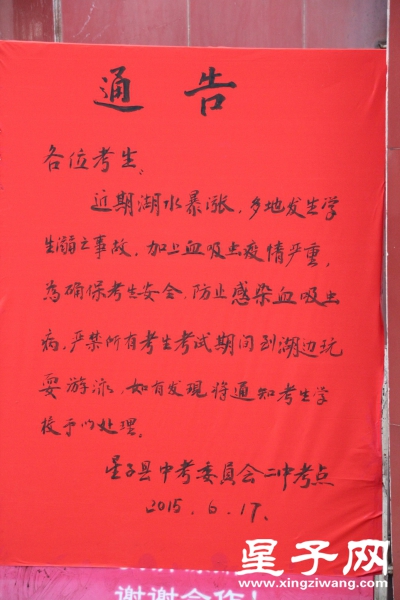 通告
各位考生、
近期湖水暴涨，多地发生学
生溺亡事故，加上血吸虫疫情严重，
为确保考生安全、防止感染血吸虫
病，严禁所有考生考试期间到湖边玩
耍游泳，如有发现将通知考生学
校予以处理。
星子县中考委员会二中考点
2015.6.17.
谢谢合作！
星子网
www.xingziwang.com